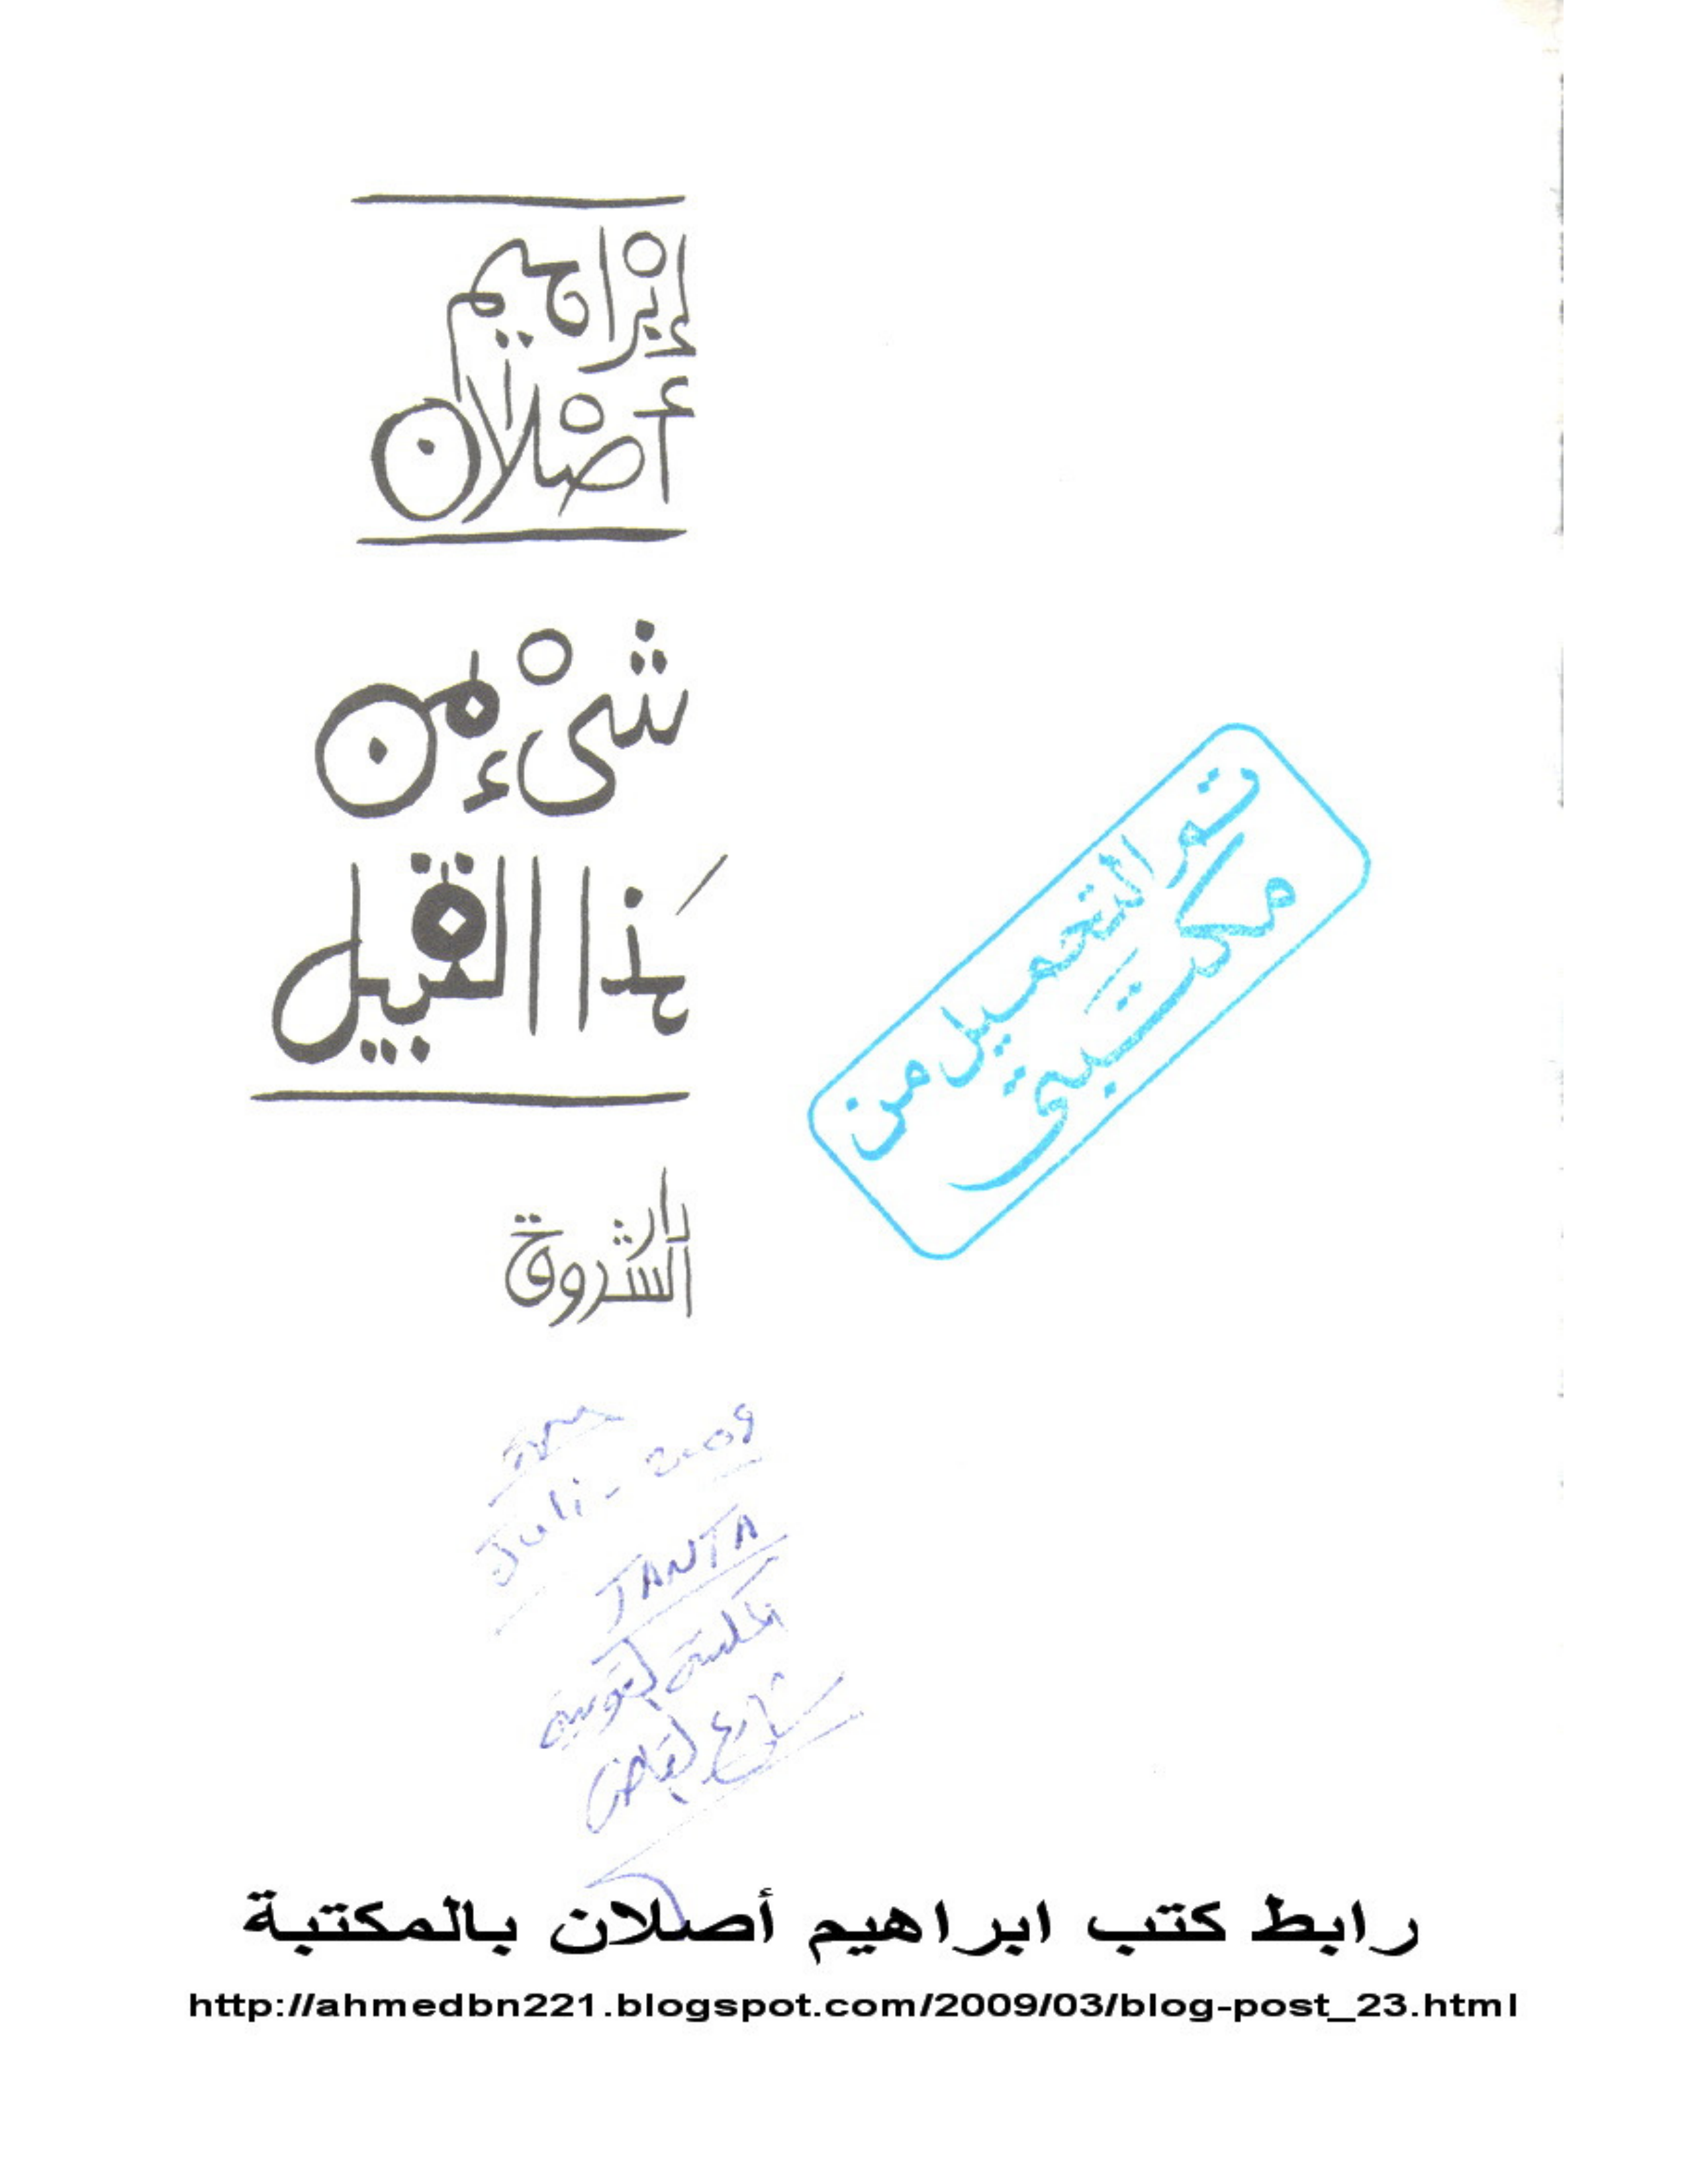 إبراهيم
أصلان
شيء من
هذا القبيل
دار
الشروق
تم التحميل من
مكتبتي
Juli - 2009
TANTA
شارع القاضي
رابط كتب ابراهيم أصلان بالمكتبة
http://ahmedbn221.blogspot.com/2009/03/blog-post_23.html